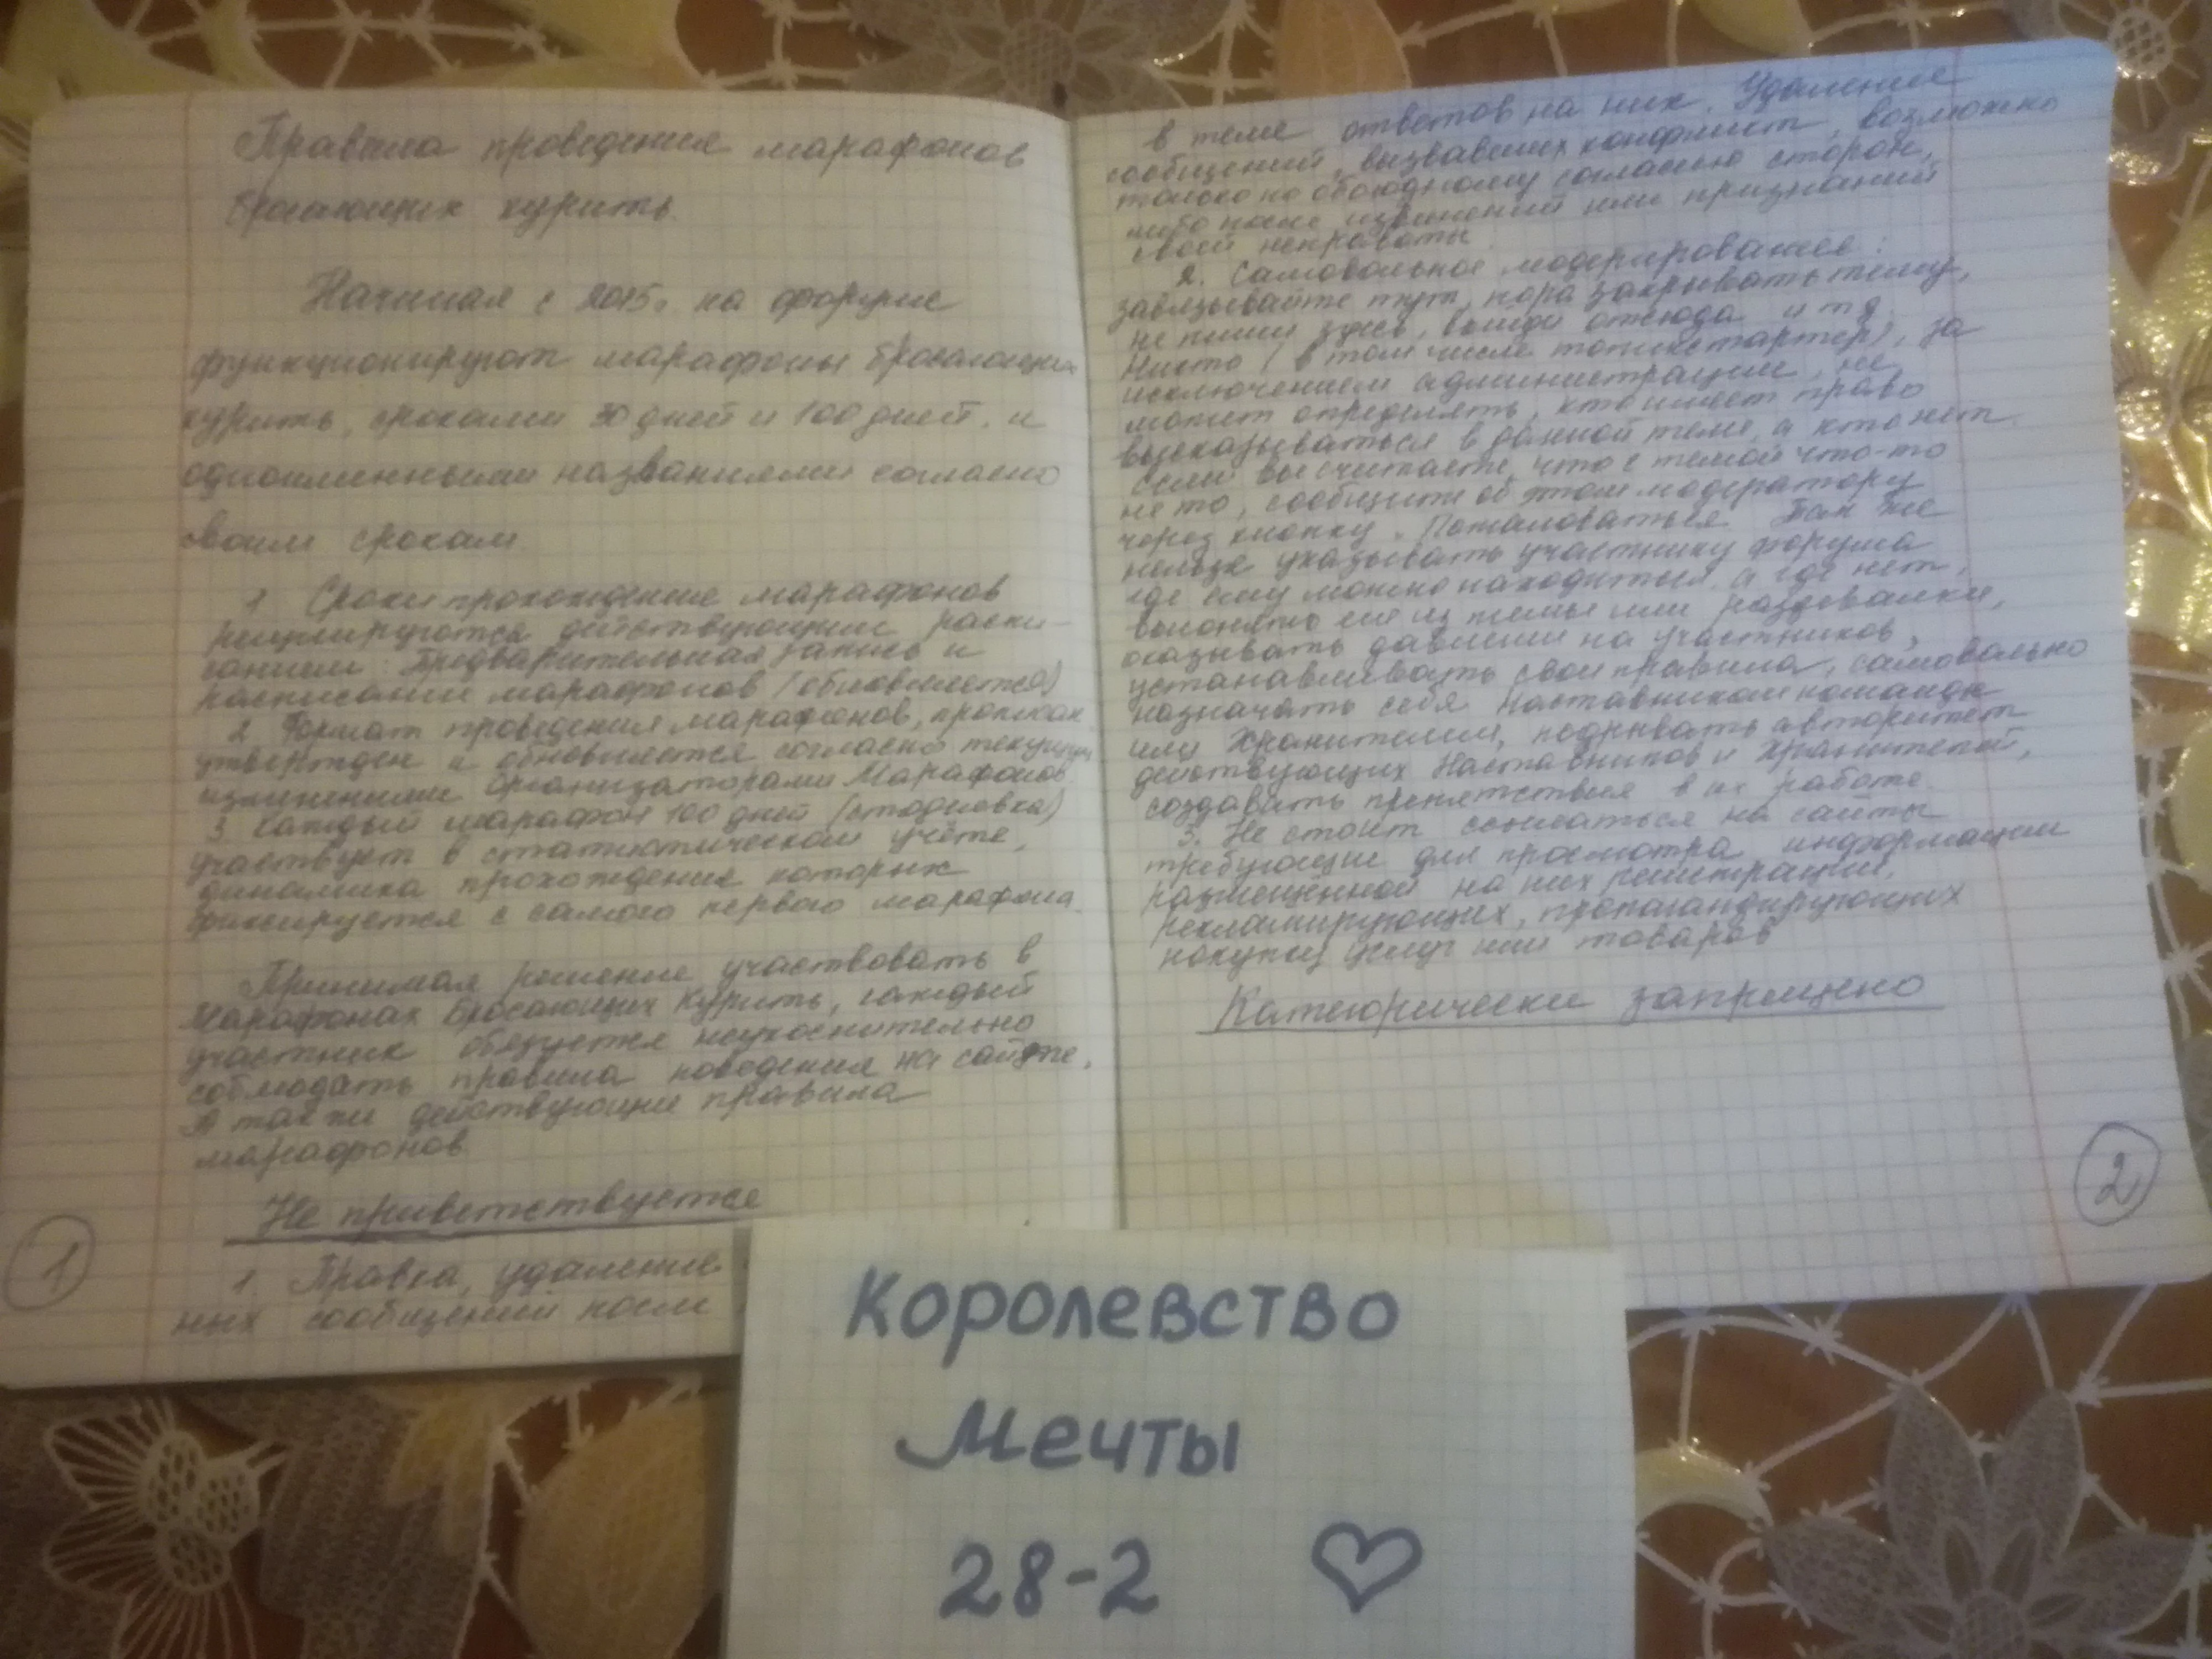 Правила проведения марафонов
бросающих курить.
Начиная с 2015г. на форуме
функционируют марафоны бросающих
курить, сроками 30 дней и 100 дней. и
одноименными названиями согласно
своим срокам
1 Сроки прохождения марафонов
регулируются действующим распи-
санием: Предварительная запись и
расписание марафонов (обновляется)
2. Формат проведения марафонов, прописан
утвержден и обновляется согласно текущим
изменениями Организаторами Марафонов
3. Каждый марафон 100 дней (стодневка)
участвует в статистическом учёте,
динамика прохождения которых
фиксируется с самого первого марафона.
Принимая решение участвовать в
Марафонах Бросающих Курить, каждый
участник обязуется неукоснительно
соблюдать правила поведения на сайте.
А так же действующие правила
марафонов
Не приветствуется
1. Правка, удаление
ных сообщений после
1
в теме ответов на них. Удаление
сообщений, вызвавших конфликт, возможно
только по обоюдному согласию сторон,
либо после извинений или признаний
своей неправоты
2. Самовольное модерирование:
завязывайте тут, пора закрывать тему,
не пиши здесь, выйди отсюда и т д
Никто (в том числе топикстартер), за
исключением администрации, не
может определять, кто имеет право
высказываться в данной теме, а кто нет.
Если вы считаете, что с темой что-то
не то, сообщите об этом модератору
через кнопку "Пожаловаться Так же
нельзя указывать участнику форума
где ему можно находиться, а где нет,
выгонять его из темы или раздевалки,
оказывать давление на участников,
устанавливать свои правила, самовольно
назначать себя Наставником команды
или Хранителем, подрывать авторитет
действующих Наставников и Хранителей,
создавать препятствия в их работе.
3. Не стоит ссылаться на сайты
требующие для просмотра информации
размещенной на них регистрации,
рекламирующих, пропагандирующих
покупку услуг или товаров
Категорически запрещено
2
Королевство
Мечты
28-2 ♡